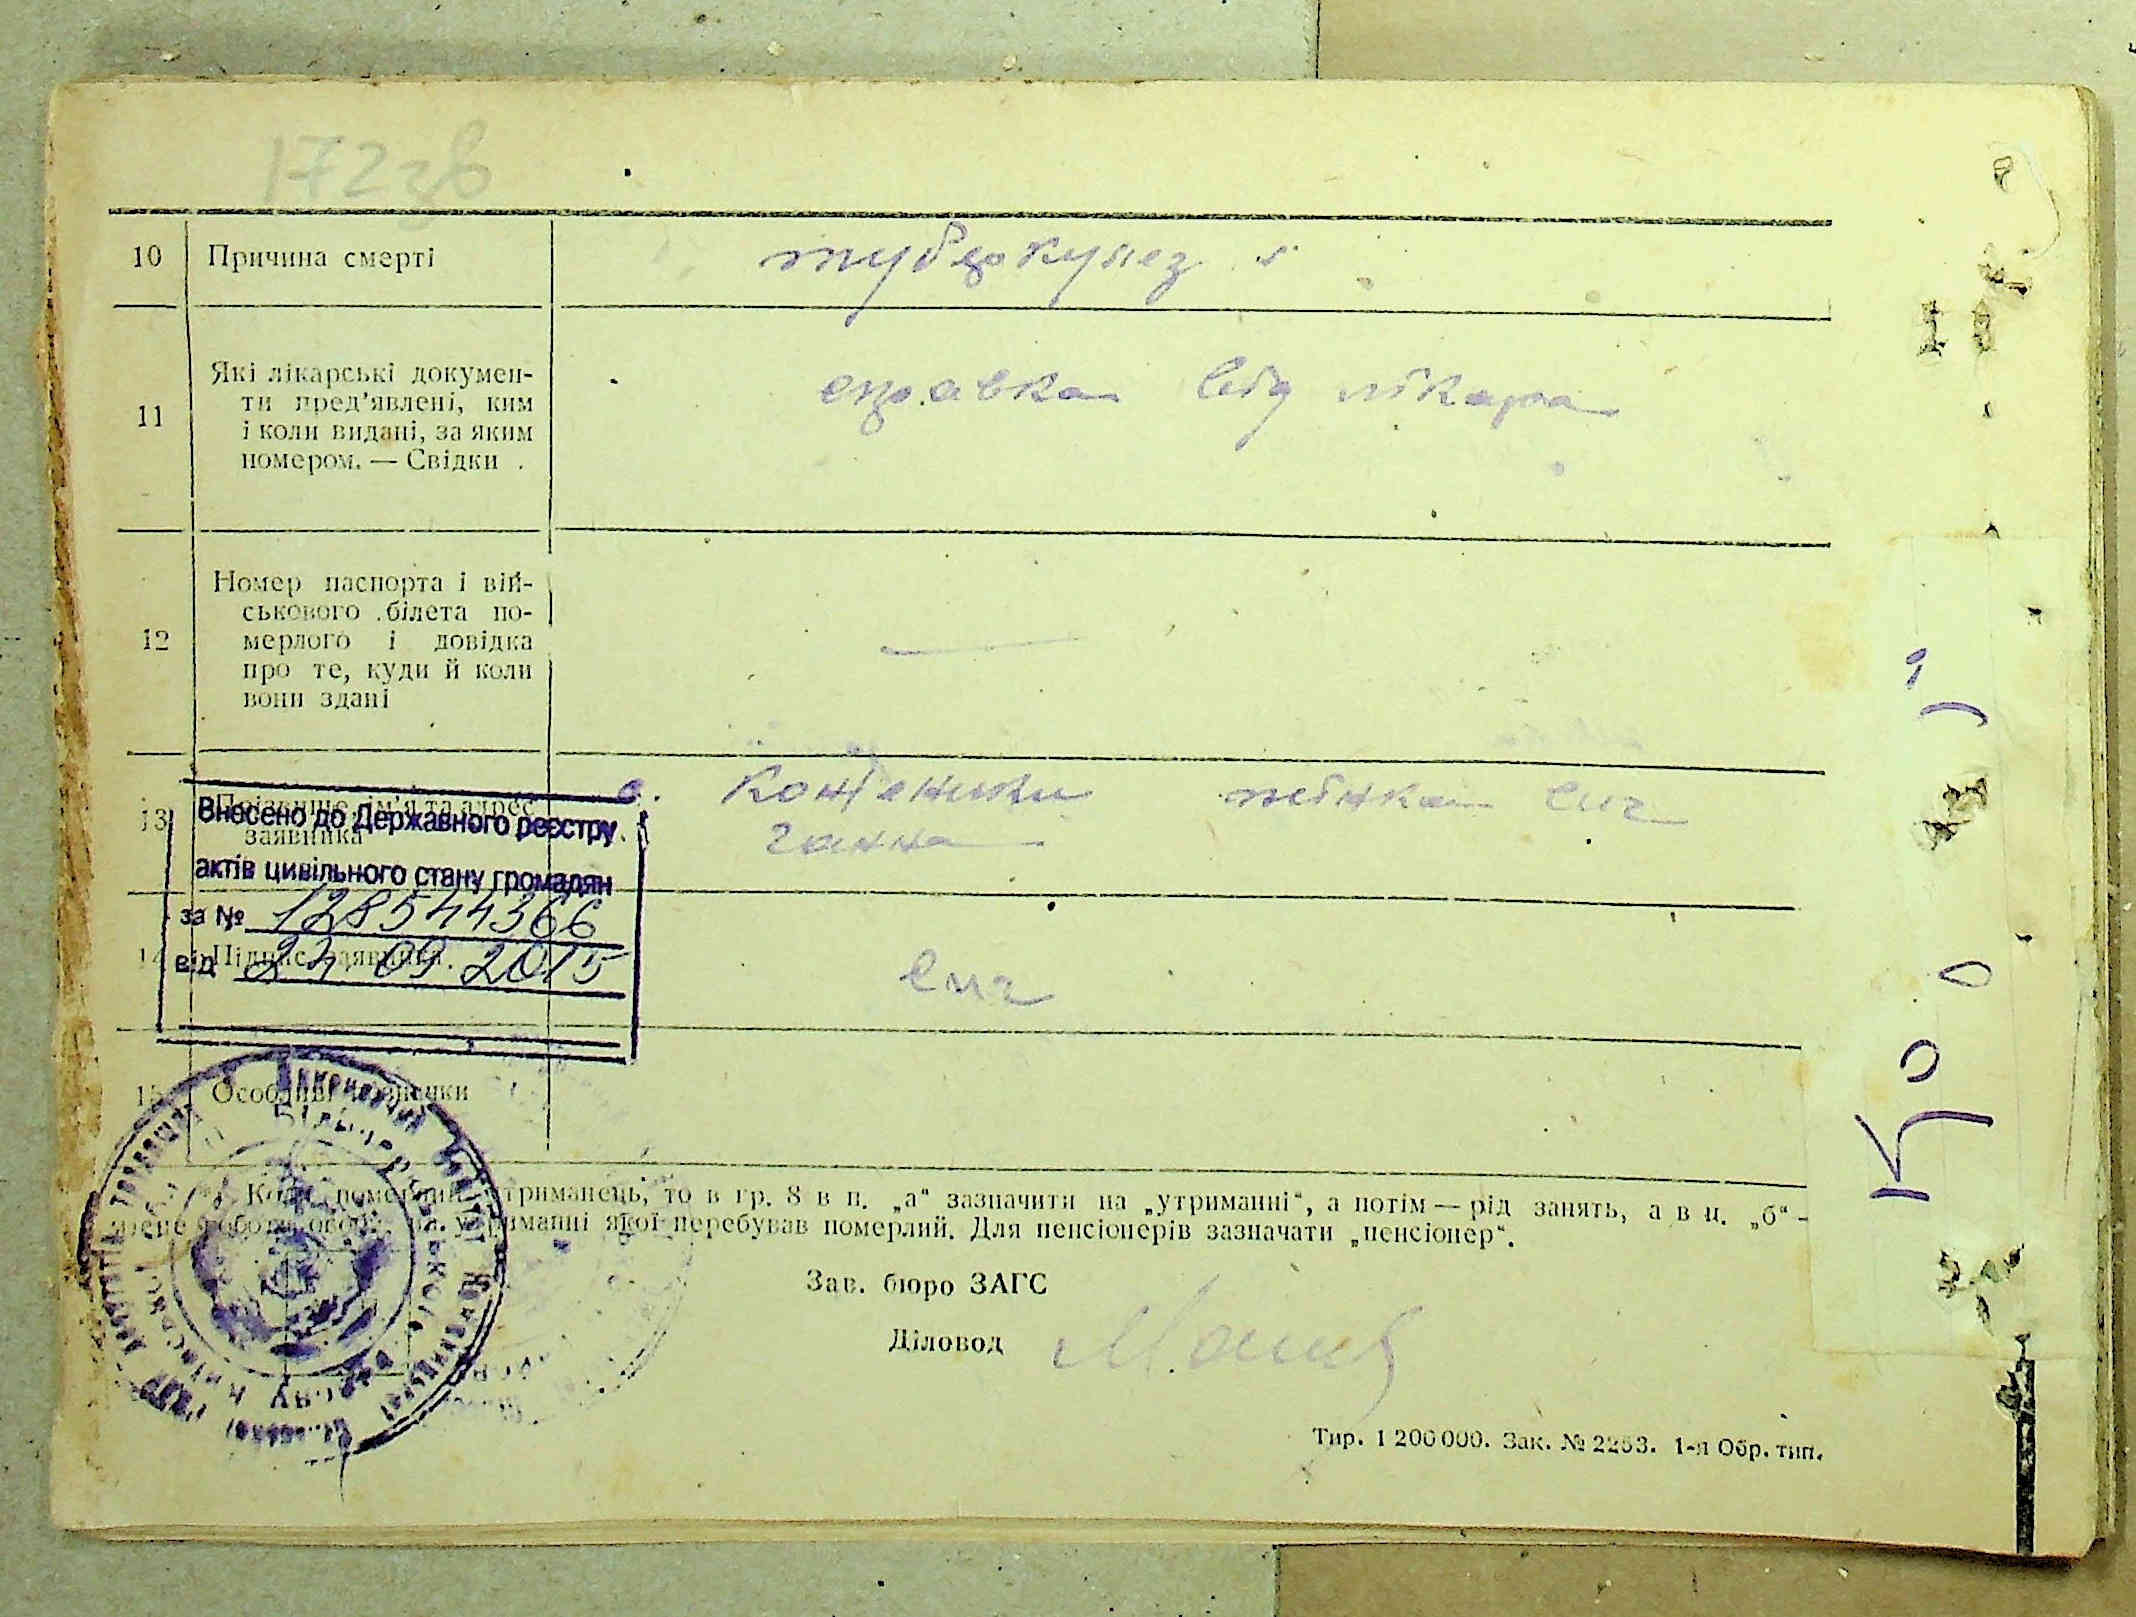 10 Причина смерті туберкулез
11 Які лікарські докумен-
ти пред'явлені, ким
і коли видані, за яким
номером. — Свідки .
справка від лікаря
12 Номер паспорта і вій-
ськового білета по-
мерлого і довідка
про те, куди й коли
вони здані
—
13 Прізвище, ім'я та адрес
заявника
с. жінка
ганна
Внесено до Державного реєстру
актів цивільного стану громадян
за № 128544366
від 09 2015
14 Підпис заявника.
15 Особливі позначки
Коли померлий утриманець, то в гр. 8 в п. „а“ зазначити на „утриманні“, а потім — рід занять, а в п. „б“ -
особи, на утриманні якої перебував померлий. Для пенсіонерів зазначати „пенсіонер“.
Зав. бюро ЗАГС
Діловод
Тир. 1 200 000. Зак. № 2253. 1-я Обр. тип.